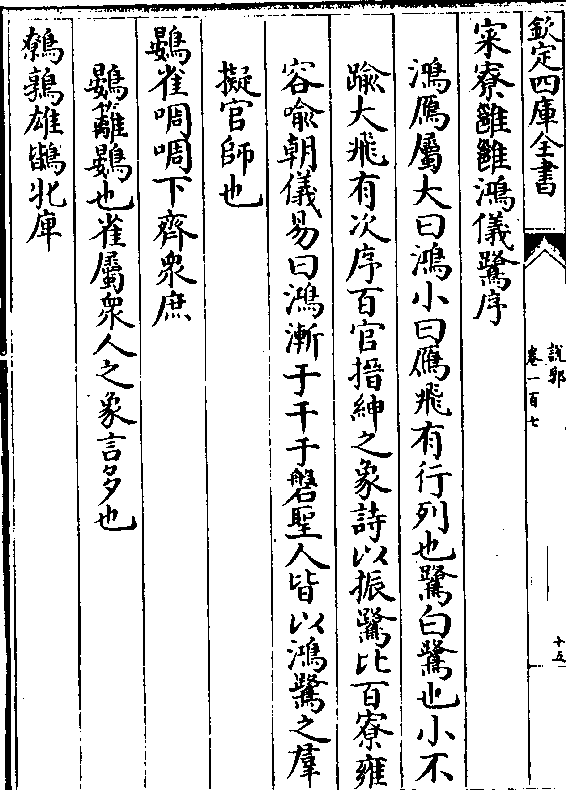 欽定四庫全書
說郛
卷一百七
十五
寀寮雝雝鴻儀鷺序
鴻鴈屬大曰鴻小曰鴈飛有行列也鷺白鷺也小不
踰大飛有次序百官搢紳之象詩以振鷺比百寮雍
容喻朝儀易曰鴻漸于干于磐聖人皆以鴻鷺之羣
擬官師也
鷃雀啁啁下齊衆庶
鷃籬鷃也雀屬衆人之象言多也
鷯鶉雄鶛牝庳